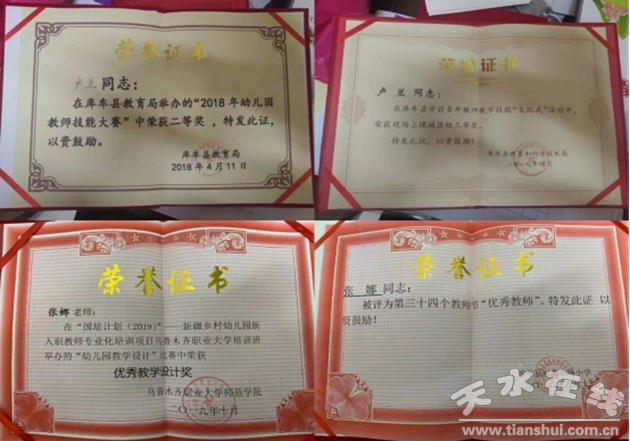 荣誉证书
卢兰 同志：
在库车县教育局举办的“2018年幼儿园
教师技能大赛”中荣获二等奖，特发此证，
以资鼓励。
库车县教育局
2018年4月11日
荣誉证书
卢 兰 同志：
在库车县学前青年教师教学技能“大比武”活动中，
荣获现场上课城区组三等奖。
特发此证，以资鼓励！
库车县教育和科学技术局
荣誉证书
张娜 老师：
在“国培计划（2019）”——新疆乡村幼儿园新
入职教师专业化培训项目乌鲁木齐职业大学培训班
举办的“幼儿园教学设计”比赛中荣获
优秀教学设计奖
乌鲁木齐职业大学师范学院
二〇一九年十月
荣誉证书
张 娜 同志：
被评为第三十四个教师节“优秀教师”。特发此证 以
资鼓励！
天水在线
www.tianshui.com.cn